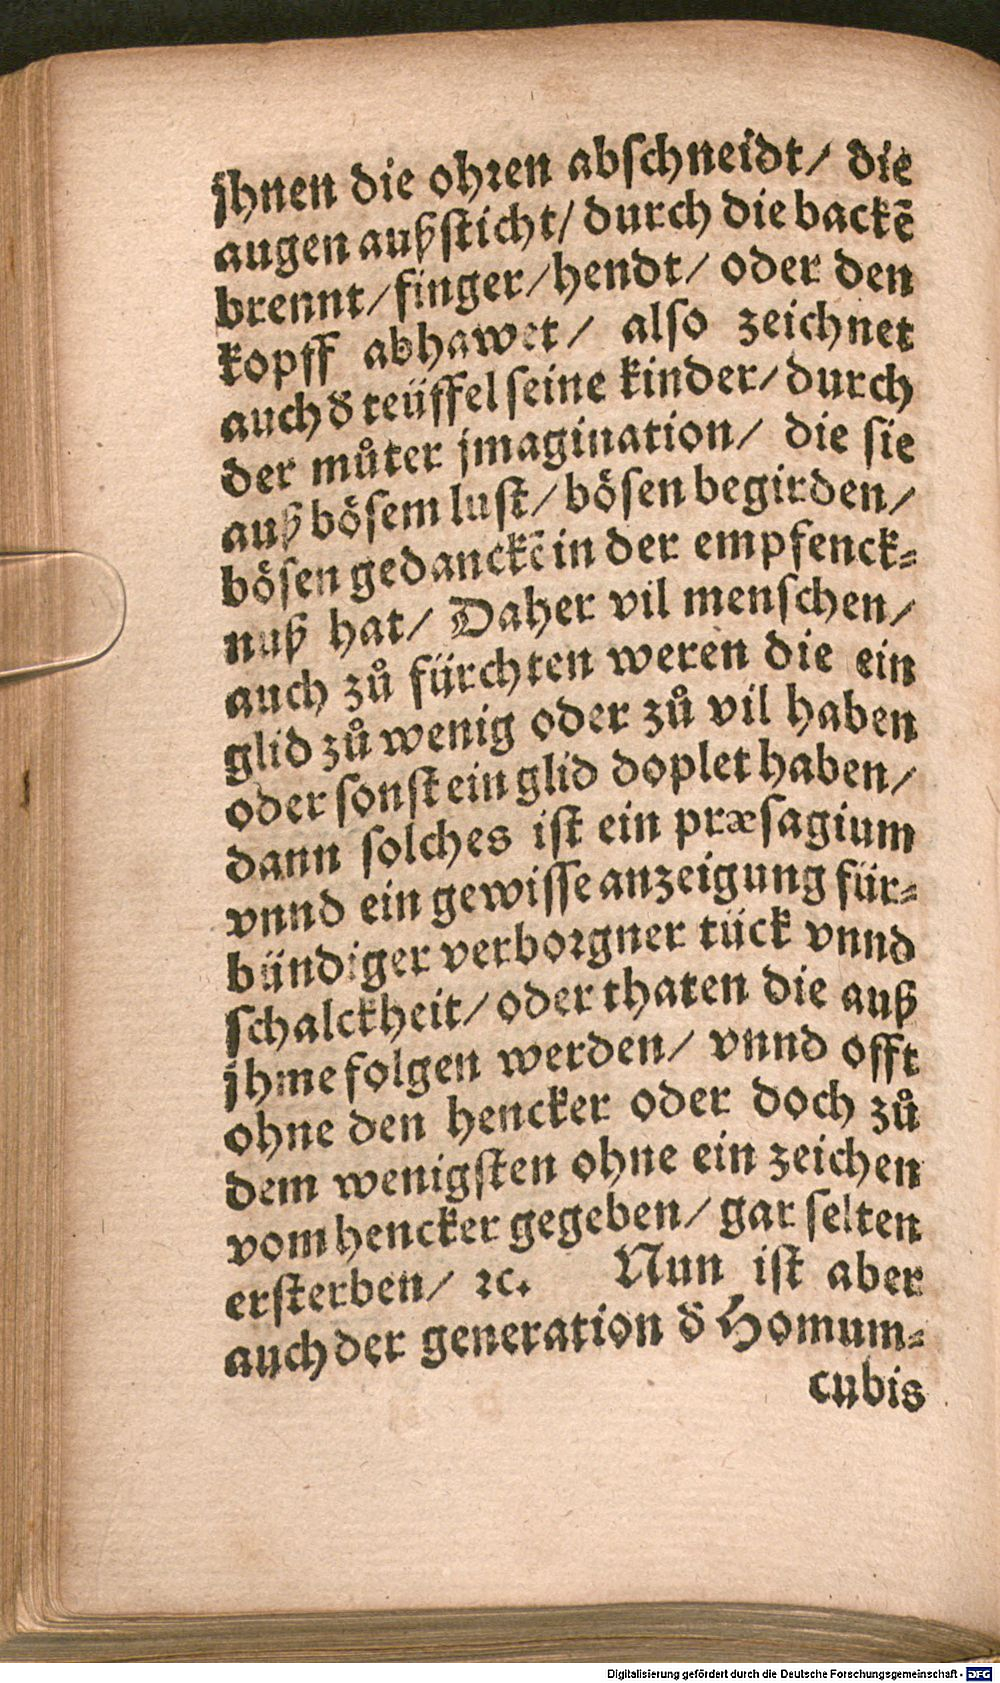 jhnen die ohꝛen abſchneidt/ die
augen außſticht/ durch die backē
brennt/ finger/ hendt/ oder den
kopff abhawet/ alſo zeichnet
auch ð teüffel ſeine kinder/ durch
der můter jmagination/ die ſie
auß böſem luſt/ böſen begirden/
böſen gedanckē in der empfenck⸗
nuß hat/ Daher vil menſchen/
auch zů fürchten weren die ein
glid zů wenig oder zů vil haben
oder ſonſt ein glid doplet haben/
dann ſolches iſt ein præſagium
vnnd ein gewiſſe anzeigung für⸗
bündiger verboꝛgner tück vnnd
ſchalckheit/ oder thaten die auß
jhme folgen werden/ vnnd offt
ohne den hencker oder doch zů
dem wenigſten ohne ein zeichen
vom hencker gegeben/ gar ſelten
erſterben/ ꝛc. Nun iſt aber
auch der generation ð Homum⸗
cubis
Digitalisierung gefördert durch die Deutsche Forschungsgemeinschaft - DFG